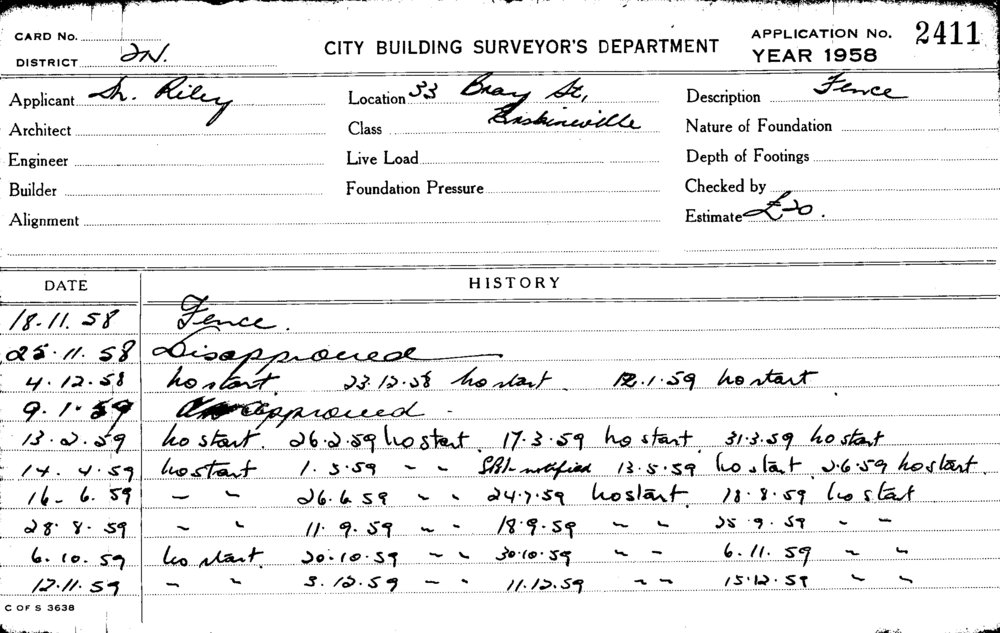 CARD No. CITY BUILDING SURVEYOR'S DEPARTMENT APPLICATION No. 2411
DISTRICT 2N. YEAR 1958
Applicant Riley Location 33 Bray St, Description Fence
Architect Class Erskineville Nature of Foundation
Engineer Live Load Depth of Footings
Builder Foundation Pressure Checked by
Alignment Estimate £20.
DATE HISTORY
18.11.58 Fence.
25.11.58 Disapproved
4.12.58 No start 23.12.58 No start. 12.1.59 No start
9.1.59 approved.
13.2.59 No start. 26.2.59 No start 17.3.59 No start 31.3.59 No start
14.4.59 No start 1.5.59 " " notified 13.5.59 No start 2.6.59 No start.
16.6.59 " " 26.6.59 " " 24.7.59 No start 18.8.59 No start
28.8.59 " " 11.9.59 " " 18.9.59 " " 25.9.59 " "
6.10.59 No start. 20.10.59 " " 30.10.59 " " 6.11.59 " "
12.11.59 " " 3.12.59 " " 11.12.59 " " 15.12.59 " "
C OF S 3638